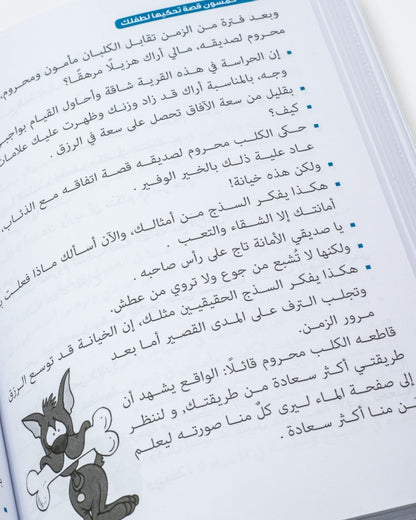 خمسون قصة تحكيها لطفلك
وبعد فترة من الزمن تقابل الكلبان مأمون ومحروم،
محروم لصديقه، مالي أراك هزيلًا مرهقًا؟
إن الحراسة في هذه القرية شاقة وأحاول القيام بواجبي
وجه، بالمناسبة أراك قد زاد وزنك وظهرت عليك علامات
بقليل من سعة الآفاق تحصل على سعة في الرزق .
كيف؟
حكى الكلب محروم لصديقه قصة اتفاقه مع الذئاب،
عاد علية ذلك بالخير الوفير .
ولكن هذه خيانة!
هكذا يفكر السذج من أمثالك، والآن أسألك ماذا فعلت
أمانتك إلا الشقاء والتعب .
يا صديقي الأمانة تاج على رأس صاحبه .
ولكنها لا تُشبع من جوع ولا تروي من عطش.
هكذا يفكر السذج الحقيقيين مثلك، إن الخيانة قد توسع الرزق
وتجلب الترف على المدى القصير أما بعد
مرور الزمن.
قاطعه الكلب محروم قائلًا: الواقع يشهد أن
طريقتي أكثر سعادة من طريقتك, و لننظر
إلى صفحة الماء ليرى كلٌ منا صورته ليعلم
من منا أكثر سعادة .